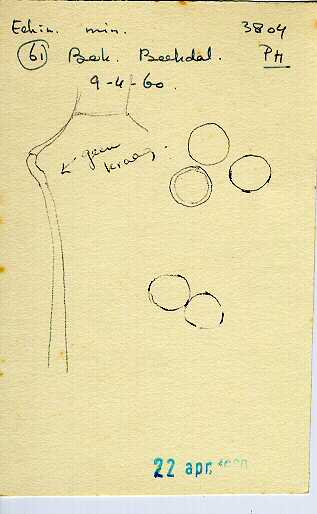 Echin. min. 3804
61 Bak. Beekdal. PH
9-4-60.
geen
kraag
22 apr. 1960